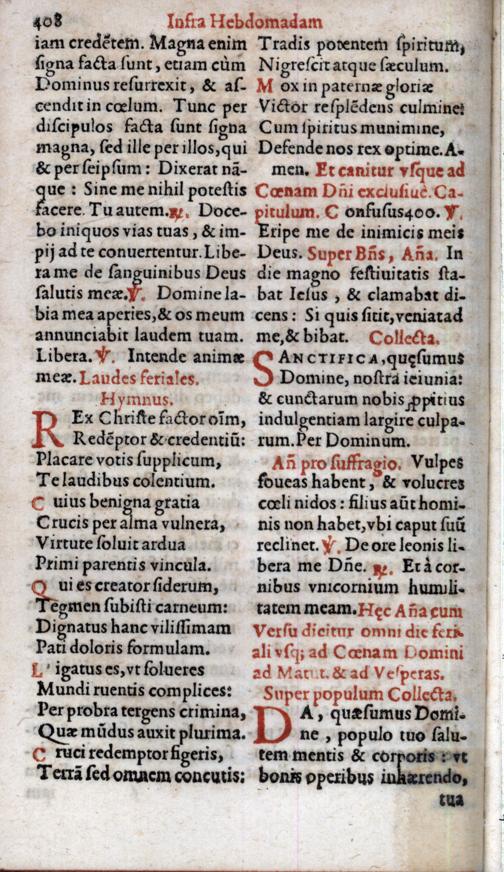 408 Infra Hebdomadam
iam credẽtem. Magna enim
ſigna facta ſunt, etiam cùm
Dominus reſurrexit, & aſ-
cendit in cœlum. Tunc per
diſcipulos facta ſunt ſigna
magna, ſed ille per illos, qui
& per ſeipſum: Dixerat nã-
que: Sine me nihil poteſtis
facere. Tu autem. ℟. Doce-
bo iniquos vias tuas, & im-
pij ad te conuertentur. Libe-
ra me de ſanguinibus Deus
ſalutis meæ. ℣. Domine la-
bia mea aperies, & os meum
annunciabit laudem tuam.
Libera. ℣. Intende animæ
meæ. Laudes feriales.
Hymnus.
REx Chriſte factor oĩm,
Redẽptor & credentiũ:
Placare votis ſupplicum,
Te laudibus colentium.
C uius benigna gratia
Crucis per alma vulnera,
Virtute ſoluit ardua
Primi parentis vincula.
Q ui es creator ſiderum,
Tegmen ſubiſti carneum:
Dignatus hanc viliſſimam
Pati doloris formulam.
L igatus es, vt ſolueres
Mundi ruentis complices:
Per probra tergens crimina,
Quæ mũdus auxit plurima.
C ruci redemptor figeris,
Terrã ſed omnem concutis:
Tradis potentem ſpiritum,
Nigreſcit atque ſæculum.
M ox in paternæ gloriæ
Victor reſplẽdens culmine:
Cum ſpiritus munimine,
Defende nos rex optime. A-
men. Et canitur vſque ad
Cœnam Dñi excluſiuè. Ca-
pitulum. C onfuſus 400. ℣.
Eripe me de inimicis meis
Deus. Super Bñs, Aña. In
die magno feſtiuitatis ſta-
bat Ieſus, & clamabat di-
cens: Si quis ſitit, veniat ad
me, & bibat. Collecta.
SANCTIFICA, quęſumus
Domine, noſtra ieiunia:
& cunctarum nobis ꝓpitius
indulgentiam largire culpa-
rum. Per Dominum.
Añ pro ſuffragio. Vulpes
foueas habent, & volucres
cœli nidos: filius aũt homi-
nis non habet, vbi caput ſuũ
reclinet. ℣. De ore leonis li-
bera me Dñe. ℟. Et à cor-
nibus vnicornium humili-
tatem meam. Hęc Aña cum
Verſu dicitur omni die feri-
ali vſq; ad Cœnam Domini
ad Matut. & ad Veſperas.
Super populum Collecta.
DA, quæſumus Domi-
ne, populo tuo ſalu-
tem mentis & corporis: vt
bonis operibus inhærendo,
tua